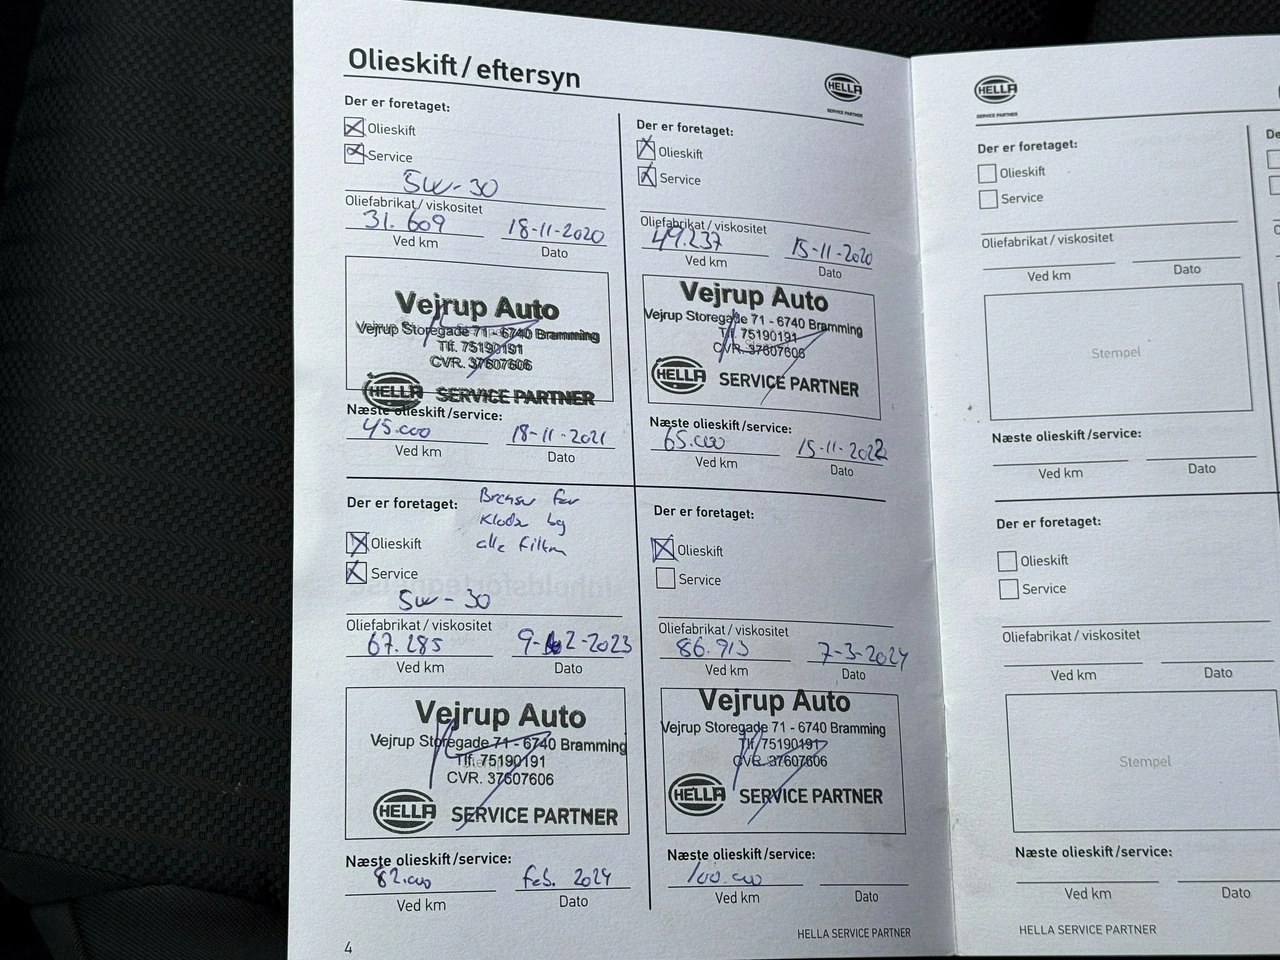 Olieskift / eftersyn
HELLA
SERVICE PARTNER
Der er foretaget:
Olieskift
Service
5W-30
Oliefabrikat / viskositet
31.609 18-11-2020
Ved km Dato
Vejrup Auto
Vejrup Storegade 71 - 6740 Bramming
Tlf. 75190191
CVR. 37607606
HELLA SERVICE PARTNER
Næste olieskift/service:
45.000 18-11-2021
Ved km Dato
Der er foretaget:
Olieskift
Service
Oliefabrikat / viskositet
49.237 15-11-2020
Ved km Dato
Vejrup Auto
Vejrup Storegade 71 - 6740 Bramming
Tlf. 75190191
CVR. 37607606
HELLA SERVICE PARTNER
Næste olieskift/service:
65.000 15-11-2022
Ved km Dato
Der er foretaget:
Bremser for
Klodser og
alle filtre
Olieskift
Service
5W-30
Oliefabrikat / viskositet
67.285 9-2-2023
Ved km Dato
Vejrup Auto
Vejrup Storegade 71 - 6740 Bramming
Tlf. 75190191
CVR. 37607606
HELLA SERVICE PARTNER
Næste olieskift/service:
82.000 feb. 2024
Ved km Dato
4
Der er foretaget:
Olieskift
Service
Oliefabrikat / viskositet
86.913 7-3-2024
Ved km Dato
Vejrup Auto
Vejrup Storegade 71 - 6740 Bramming
Tlf. 75190191
CVR. 37607606
HELLA SERVICE PARTNER
Næste olieskift/service:
100.000
Ved km Dato
HELLA SERVICE PARTNER
HELLA
SERVICE PARTNER
Der er foretaget:
Olieskift
Service
Oliefabrikat / viskositet
Ved km Dato
Stempel
Næste olieskift/service:
Ved km Dato
De
Der er foretaget:
Olieskift
Service
Oliefabrikat / viskositet
Ved km Dato
Stempel
Næste olieskift/service:
Ved km Dato
HELLA SERVICE PARTNER